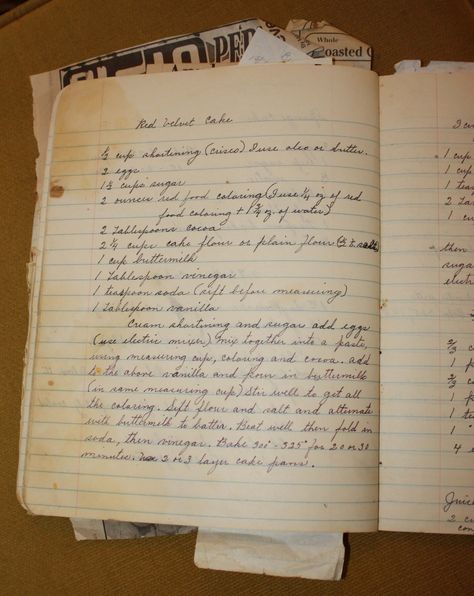 PE
Whole
oasted C
Red Velvet Cake
½ cup shortening (crisco) I use oleo or butter.
2 eggs
1½ cups sugar
2 ounces red food coloring (I use ¼ oz of red
food coloring + 1¾ oz. of water)
2 tablespoons cocoa
2¼ cups cake flour or plain flour (½ t. salt)
1 cup buttermilk
1 tablespoon vinegar
1 teaspoon soda (sift before measuring)
1 tablespoon vanilla
Cream shortening and sugar add eggs
(use electric mixer) Mix together into a paste,
using measuring cup, coloring and cocoa. add
to the above vanilla and pour in buttermilk
(in same measuring cup) Stir well to get all
the coloring. Sift flour and salt and alternate
with buttermilk to batter. Beat well then fold in
soda, then vinegar. Bake 300° - 325° for 20 or 30
minutes. Use 2 or 3 layer cake pans.
1 cup
1 cup
1 tea
2 tab
1 cup
then
suga
elect
2/3 c
1 p
2/3
1 p
1 t
1
4 e
Juic
2 c
con